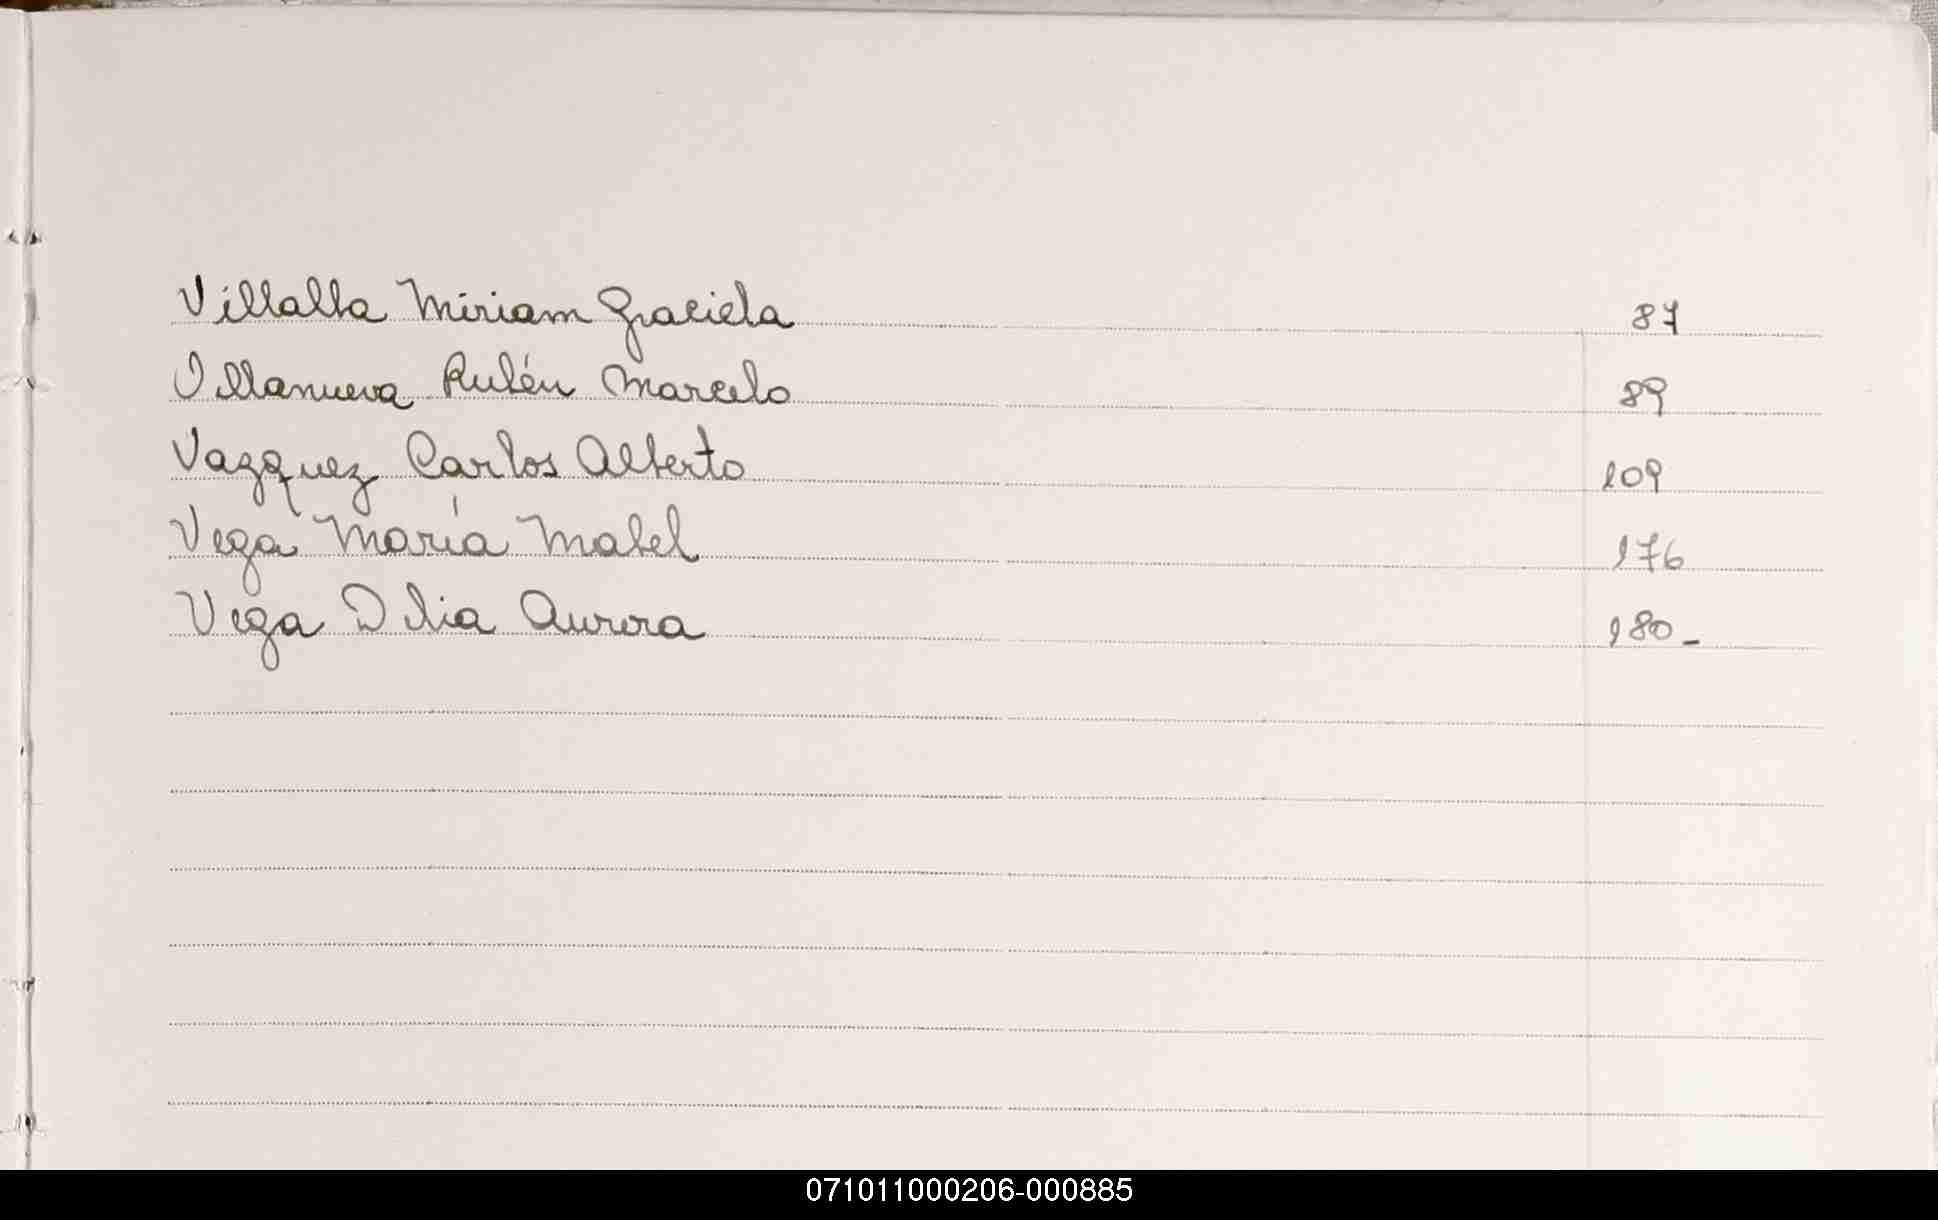 Villalba Miriam Graciela 87
Villanueva Rubén Marcelo 89
Vazquez Carlos Alberto 109
Vega María Mabel 176
Vega Delia Aurora 180-
071011000206-000885